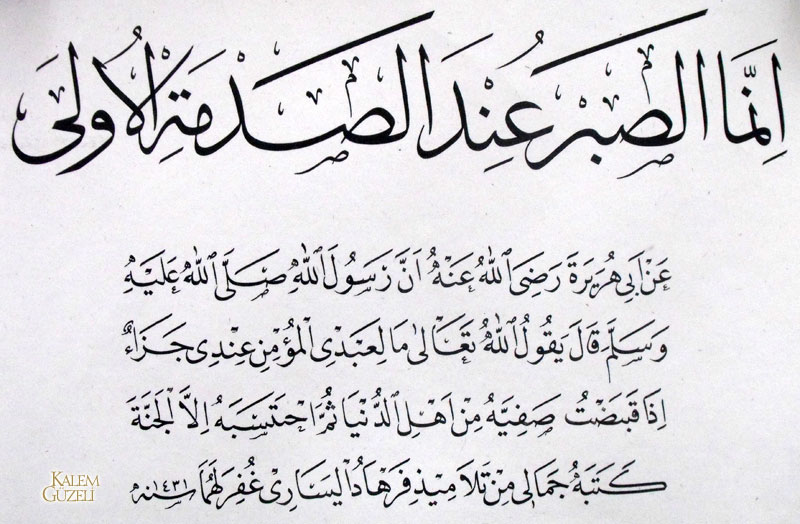 اِنَّمَا الصَّبْرُ عِنْدَ الصَّدْمَةِ الْاُولٰى
عَنْ اَبِى هُرَيْرَةَ رَضِىَ اللّٰهُ عَنْهُ اَنَّ رَسُولَ اللّٰهِ صَلَّى اللّٰهُ عَلَيْهِ
وَسَلَّمَ قَالَ يَقُولُ اللّٰهُ تَعَالٰى مَا لِعَبْدِى الْمُؤْمِنِ عِنْدِى جَزَاءٌ
اِذَا قَبَضْتُ صَفِيَّهُ مِنْ اَهْلِ الدُّنْيَا ثُمَّ احْتَسَبَهُ اِلَّا الْجَنَّةَ
كَتَبَهُ جَمَالِى مِنْ تَلَامِيذِ فَرْهَادُ الْيَسَارِى غُفِرَ لَهُمَا سنه ١٤٣١
KALEM
GÜZELİ